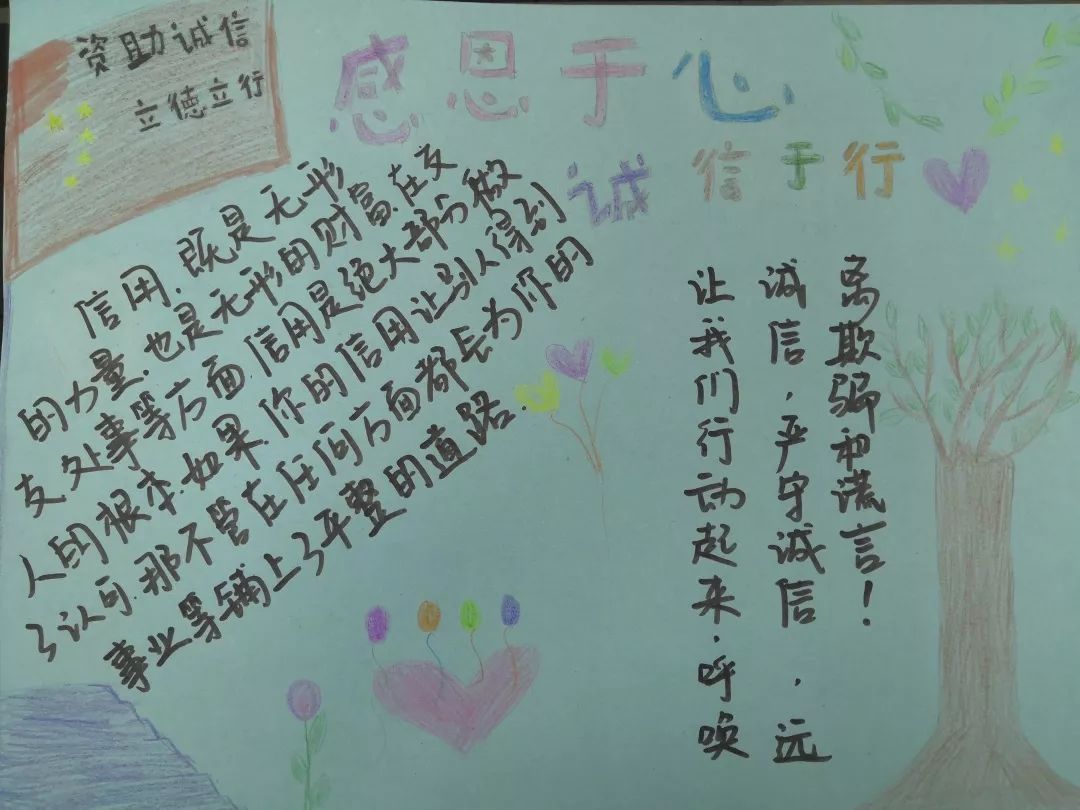 资助诚信
立德立行
感恩于心
诚信于行
信用.既是无形
的力量.也是无形的财富.在交
友处事等方面.信用是绝大部分做
人的根本.如果.你的信用让别人得到
了认可.那不管在任何方面都长为你的
事业等铺上了平整的道路.
让我们行动起来.呼唤
诚信,严守诚信,远
离欺骗和谎言!